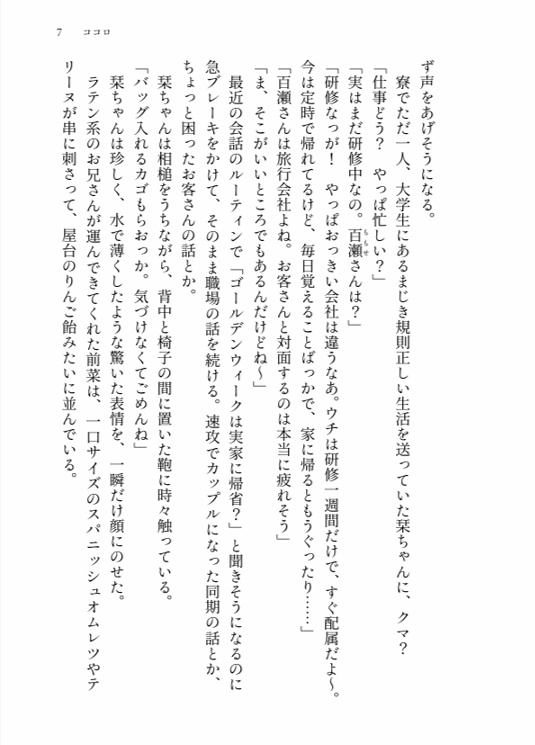 7　ココロ
ず声をあげそうになる。
　寮でただ一人、大学生にあるまじき規則正しい生活を送っていた栞ちゃんに、クマ？
「仕事どう？　やっぱ忙しい？」
「実はまだ研修中なの。百瀬さんは？」
ももせ
「研修なっが！　やっぱおっきい会社は違うなあ。ウチは研修一週間だけで、すぐ配属だよ～。
今は定時で帰れてるけど、毎日覚えることばっかで、家に帰るともうぐったり……」
「百瀬さんは旅行会社よね。お客さんと対面するのは本当に疲れそう」
「ま、そこがいいところでもあるんだけどね～」
　最近の会話のルーティンで「ゴールデンウィークは実家に帰省？」と聞きそうになるのに
急ブレーキをかけて、そのまま職場の話を続ける。速攻でカップルになった同期の話とか、
ちょっと困ったお客さんの話とか。
　栞ちゃんは相槌をうちながら、背中と椅子の間に置いた鞄に時々触っている。
「バッグ入れるカゴもらおっか。気づけなくてごめんね」
　栞ちゃんは珍しく、水で薄くしたような驚いた表情を、一瞬だけ顔にのせた。
　ラテン系のお兄さんが運んできてくれた前菜は、一口サイズのスパニッシュオムレツやテ
リーヌが串に刺さって、屋台のりんご飴みたいに並んでいる。